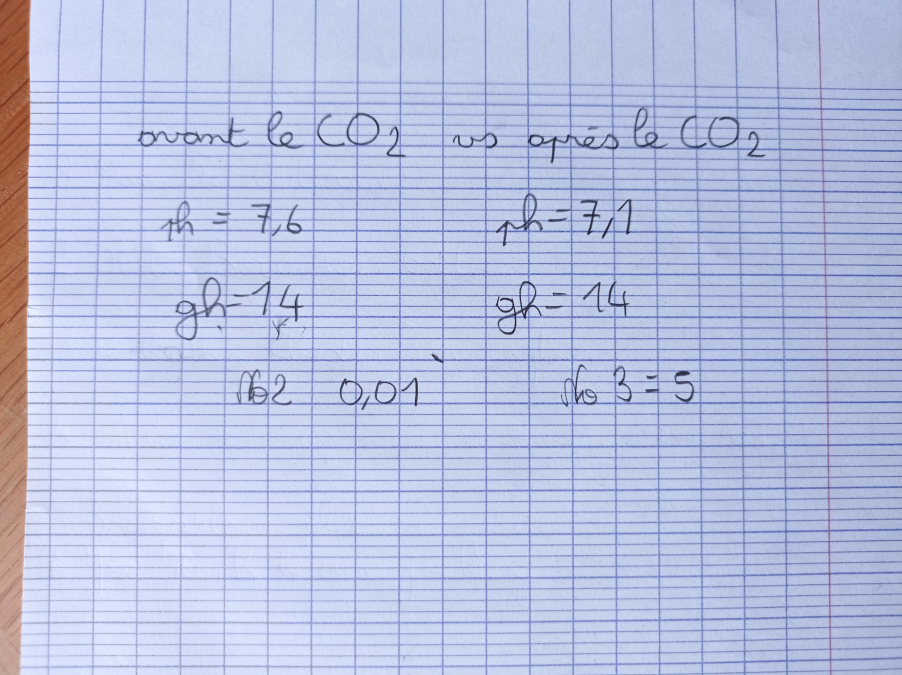 avant le CO2 vs après le CO2
ph = 7,6 ph = 7,1
gh = 14 gh = 14
No2 0,01 No3 = 5